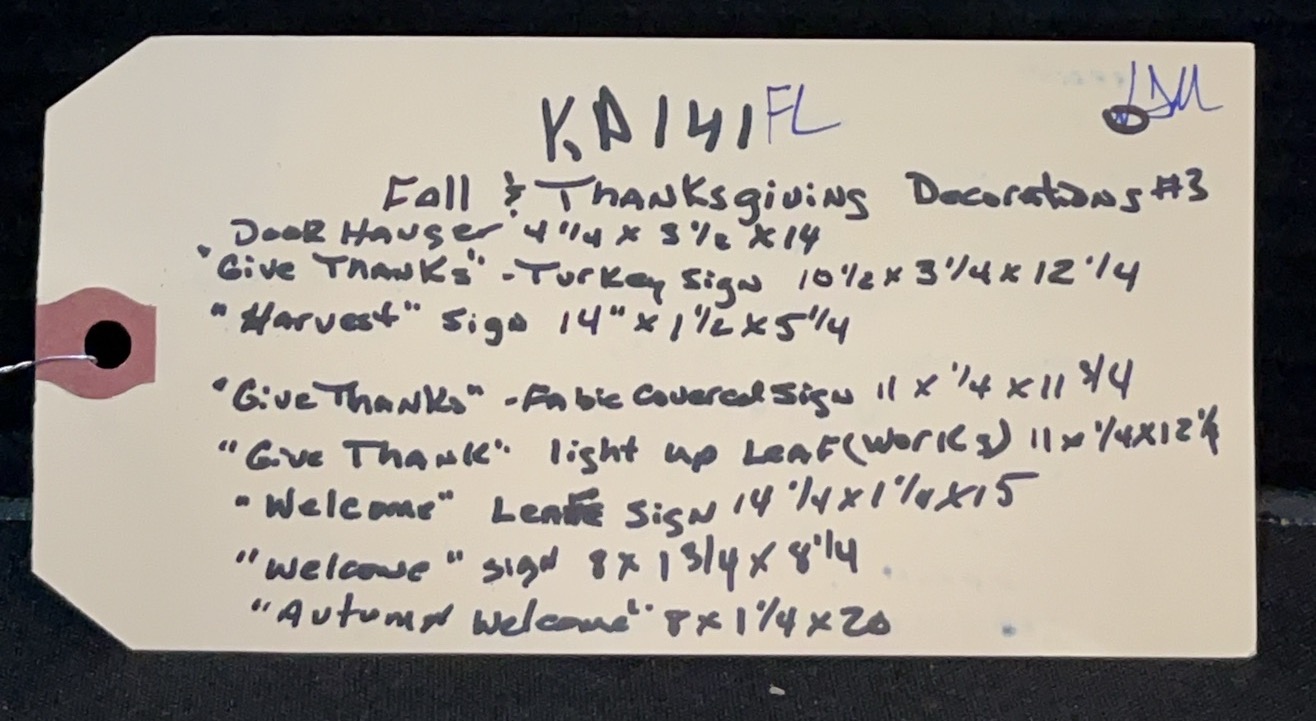 KD141 FL
Fall & Thanksgiving Decorations #3
Door Hanger 4 1/4 x 3 1/2 x 14
"Give Thanks" - Turkey Sign 10 1/2 x 3 1/4 x 12 1/4
"Harvest" Sign 14" x 1 1/2 x 5 1/4
"Give Thanks" - Fabic Covered Sign 11 x 1/4 x 11 3/4
"Give Thank" light up Leaf (Works) 11 x 1/4 x 12 1/4
"Welcome" Leafe Sign 14 1/4 x 1 1/4 x 15
"Welcome" sign 8 x 1 3/4 x 8 1/4
"Autumn Welcome" 8 x 1 1/4 x 20